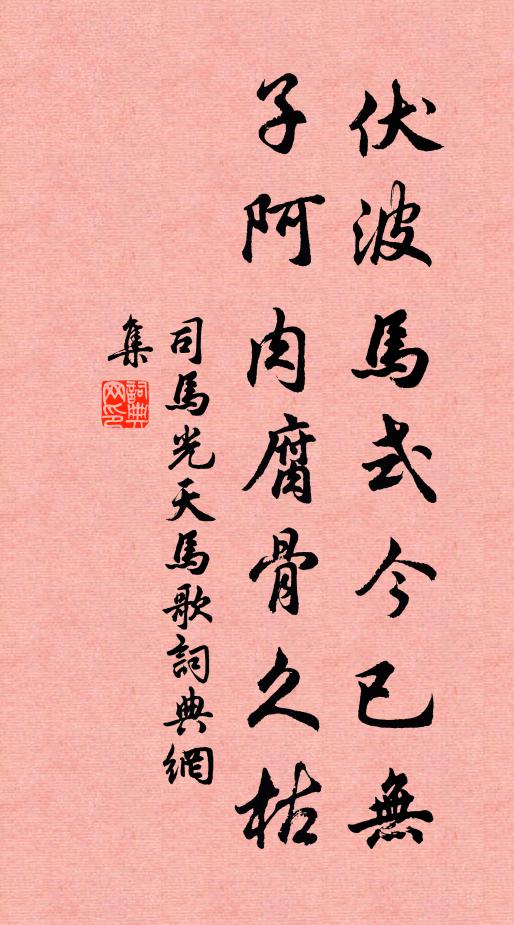 伏波馬式今已無
子阿肉腐骨久枯
司馬光天馬歌詞典網
集
詞典網印